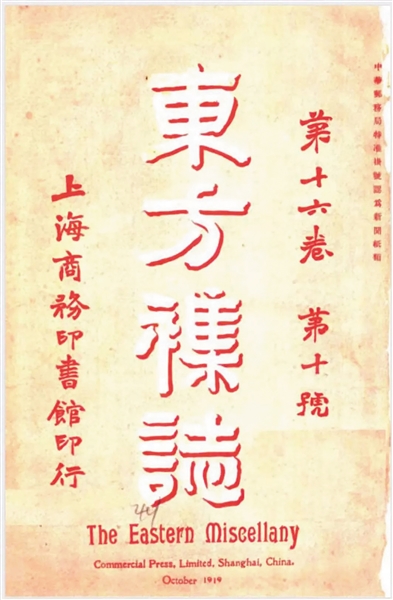 中華郵務局特准掛號認爲新聞紙類
第十六卷 第十號
東方襍誌
上海商務印書館印行
44
The Eastern Miscellany
Commercial Press, Limited, Shanghai, China.
October 1919